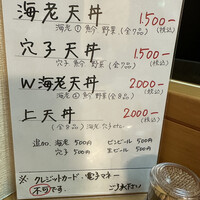 海老天丼 1,500-
海老① 魚介 野菜 (全7品) (税込)
穴子天丼 1,500-
穴子 魚介 野菜 (全7品) (税込)
W海老天丼 2000-
海老② 魚介 野菜 (全8品) (税込)
上天丼 2000-
(全8品) 海老 穴子etc (税込)
追加 海老 500円 ビンビール 500円
穴子 500円 生ビール 500円
※ クレジットカード・電子マネー
不可です。